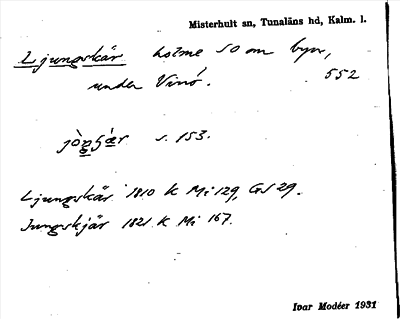 Misterhult sn, Tunaläns hd, Kalm. l.
Ljungskär holme SO om byn,
under Vinö. 552
jòŋʃæ̀r s. 153.
Ljungskär 1810 K Mi 129, GS 29.
Jungskjär 1821 K Mi 167.
Ivar Modéer 1931